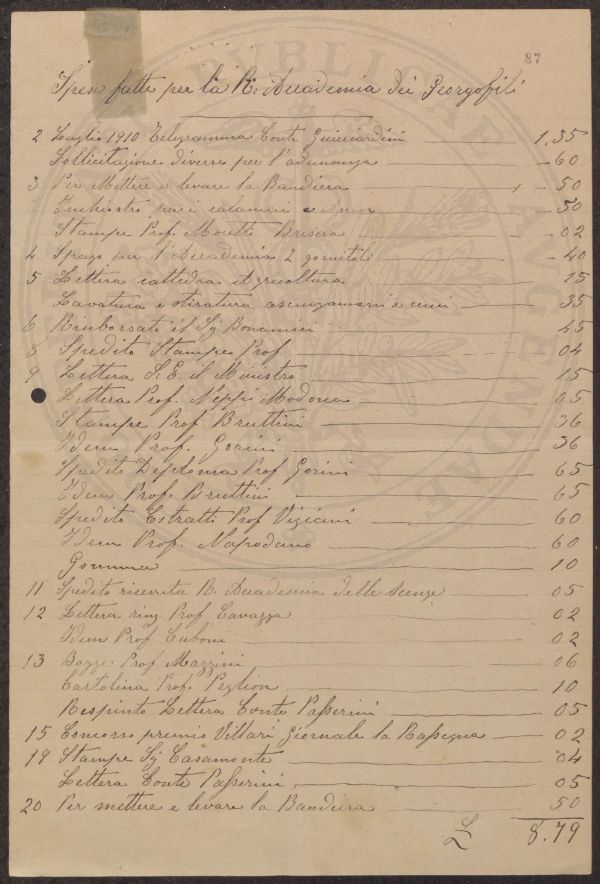 87
Spese fatte per la R: Accademia dei Georgofili
2 Luglio 1910 Telegramma Conte Guicciardini 1,35
Sollicitazione diverse per l'adunanza -60
3 Per Mettere e levare la Bandiera - 50
Inchiostro per i calamai e 50
Stampe Prof. Moretti Brescia - 02
4 Spago per l'Accademia 2 gomitoli - 40
5 Lettera cattedra Agricoltura 15
Lavatura e stiratura asciugamani e 35
6 Rimborsato il Sg Bonannini 45
8 Spedito Stampe Prof 04
9 Lettera S. E. il Ministro 15
Lettera Prof. Neppi Modona 05
Stampe Prof Bruttini 36
Idem Prof. Gorini 36
Spedito Deploma Prof Gorini 65
Idem Prof. Bruttini 65
Spedito Estratti Prof Vigiani 60
Idem Prof. Napodano 60
Gomma 10
11 Spedito ricevuta R. Accademia delle Scenze 05
12 Lettera ring. Prof Cavazza 02
Idem Prof Cuboni 02
13 Bozze Prof Mazzini 06
Cartolina Prof. Peglion 10
Respinto Lettera Conte Passerini 05
15 Concorso premio Villari giornale la Rassegna 02
19 Stampe Sg Casamonte 04
Lettera Conte Passerini 05
20 Per mettere e levare la Bandiera 50
£ 8.79